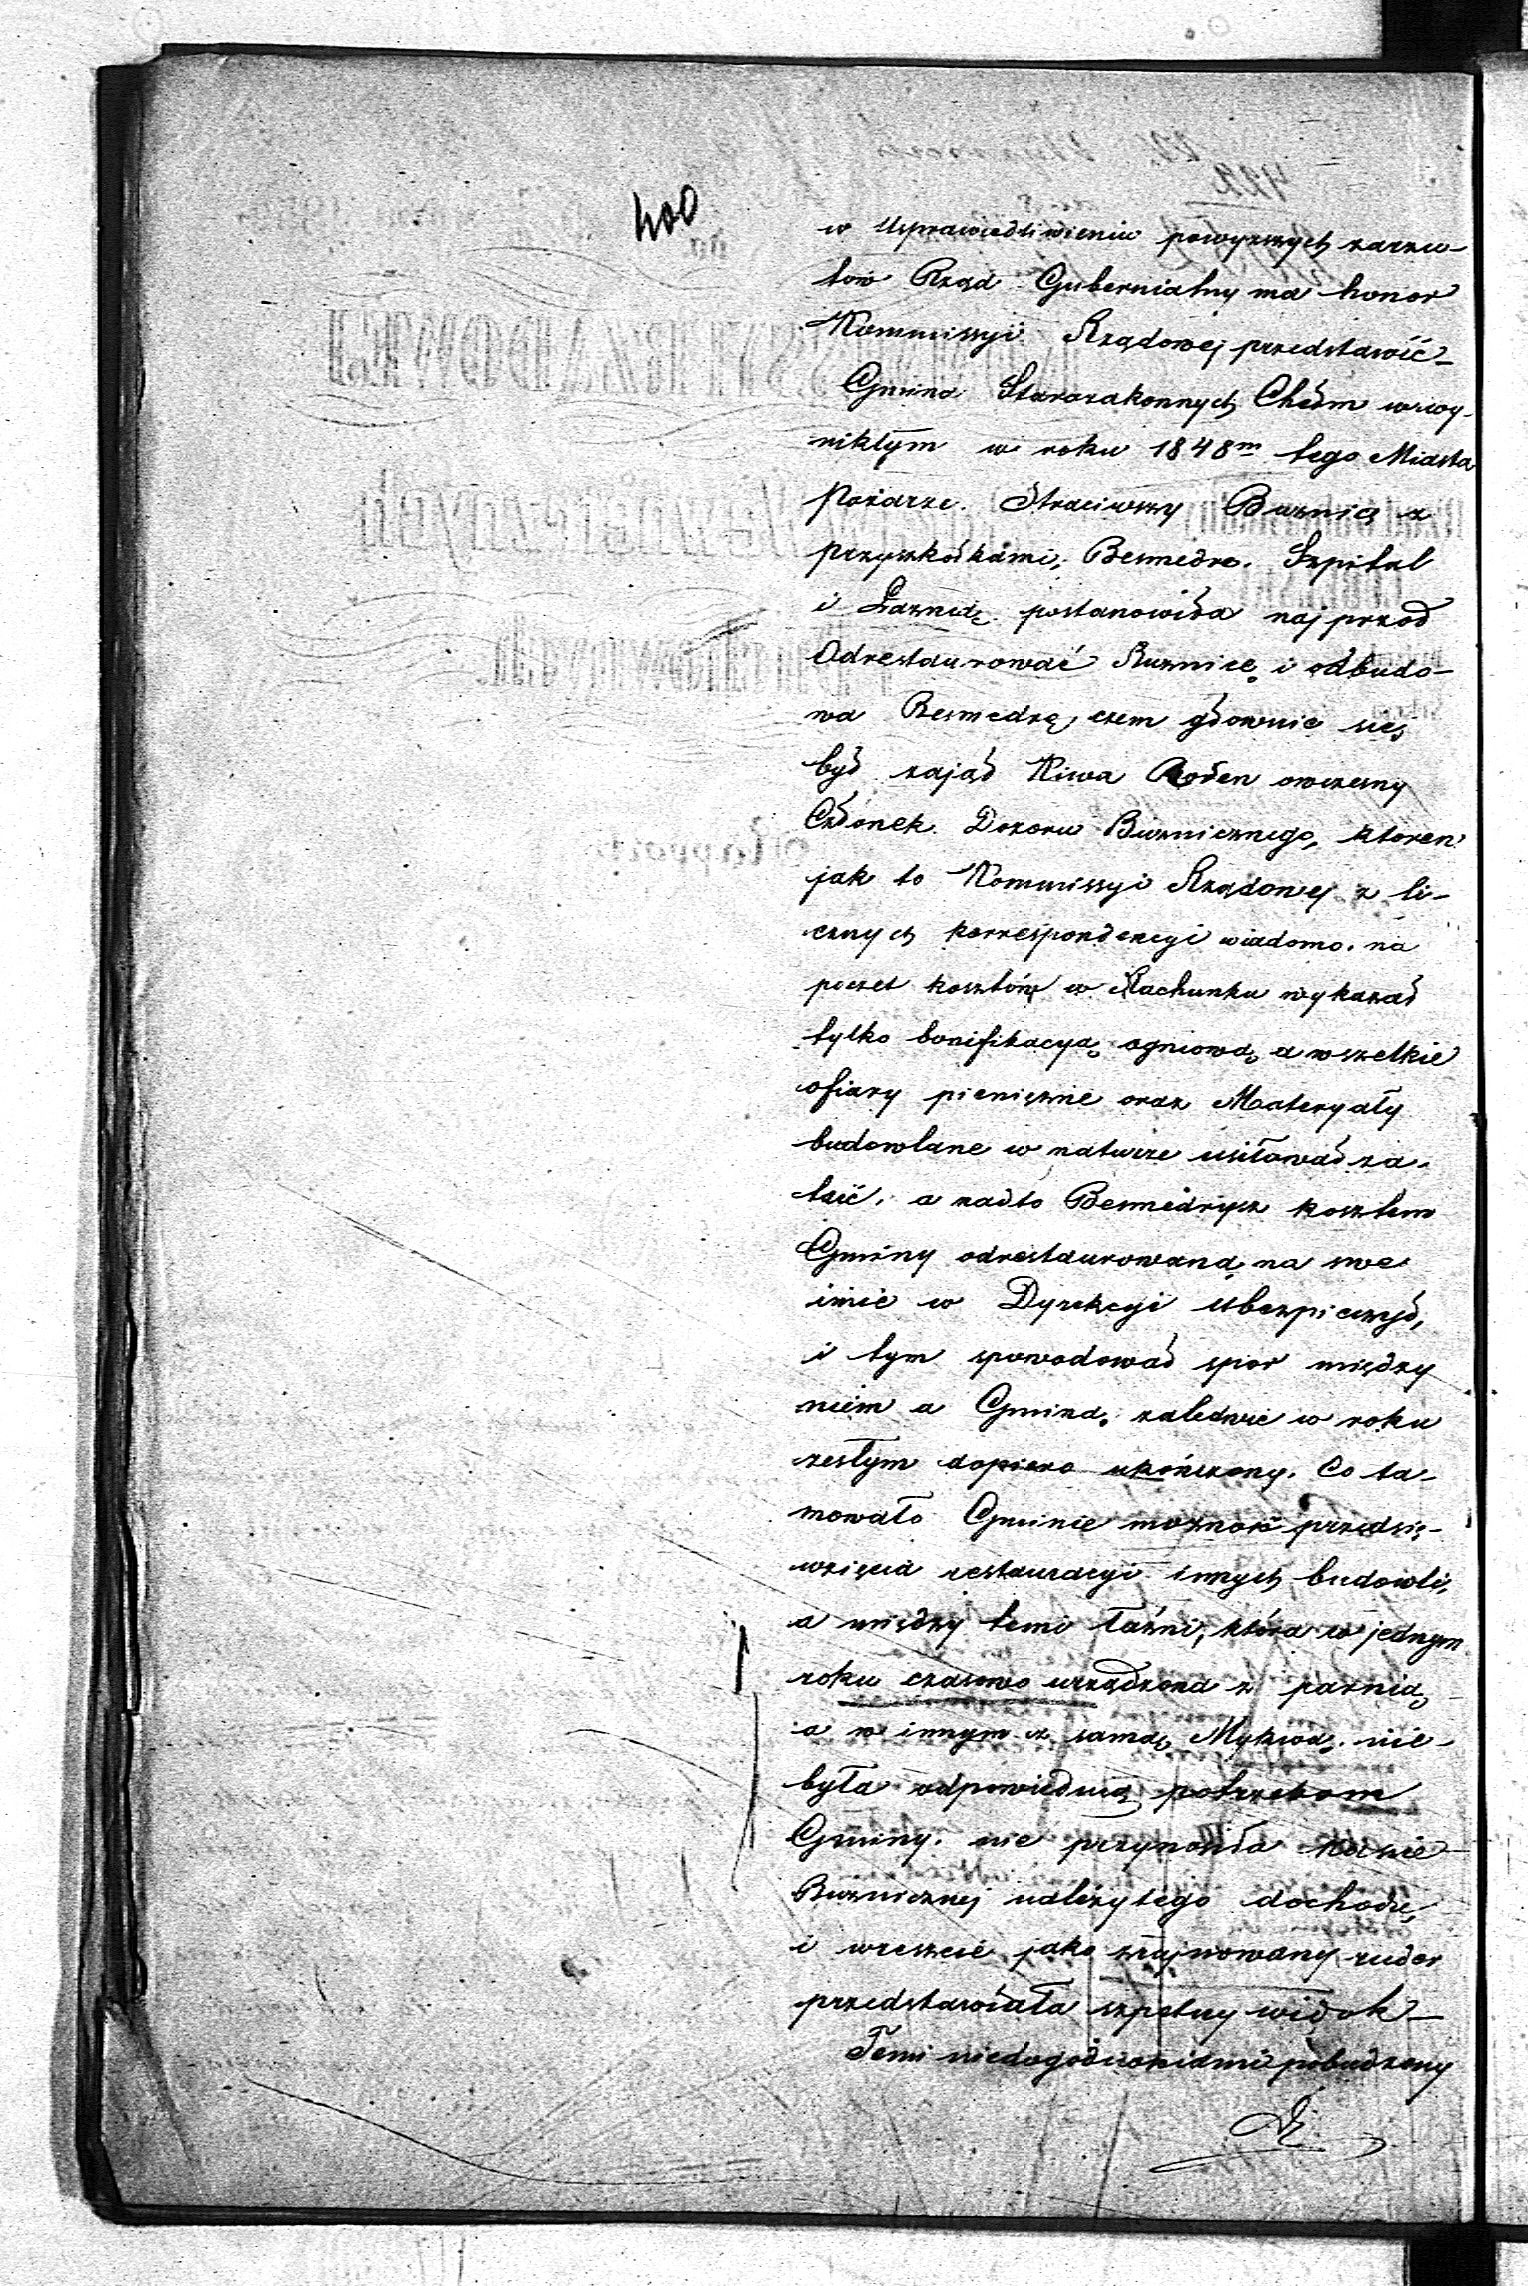 400
w Usprawiedliwieniu powyższych zarzu-
tów Rząd Gubernialny ma honor
Kommissyi Rządowej przedstawić –
Gmina Starozakonnych Chełm w wy-
nikłym w roku 1848m tego Miasta
Pożarze. Straciwszy Buznicę z
przyszkółkami, Besmedre. Szpital
i Łaznię postanowiła najprzod
Odrestaurować Buznicę i odbudo-
wa Besmedrę, czem głownie się
był zajął Kiwa Roden owczesny
Członek Dozoru Buzniczego, ktoren
jak to Kommissyi Rządowej z li-
cznych korrespondencyi wiadomo. na
poczet kosztów w Rachunku wykazał
tylko bonifikacyą ogniową a wszelkie
ofiary pieniężne oraz Materyały
budowlane w naturze usiłował za-
taić, a nadto Besmedrysz kosztem
Gminy odrestaurowaną na swe
imie w Dyrekcyi Ubezpieczył,
i tym spowodował spor między
niem a Gminą, zaledwie w roku
zeszłym dopiero ukończony. Co ta-
mowało Gminie możnosć przedsię-
wzięcia restauracyi innych budowli,
a między temi łaźni, która w jednym
roku czasowo urządzona z parnią
a w innym z samą Mykwą. nie-
była odpowiednią potrzebom
Gminy. nie przynosiła Kassie
Buzniczej należytego dochodu,
i wreszcie jako zrujnowany ruder
przedstawiała szpetny widok –
Temi niedogodnościami pobudzony